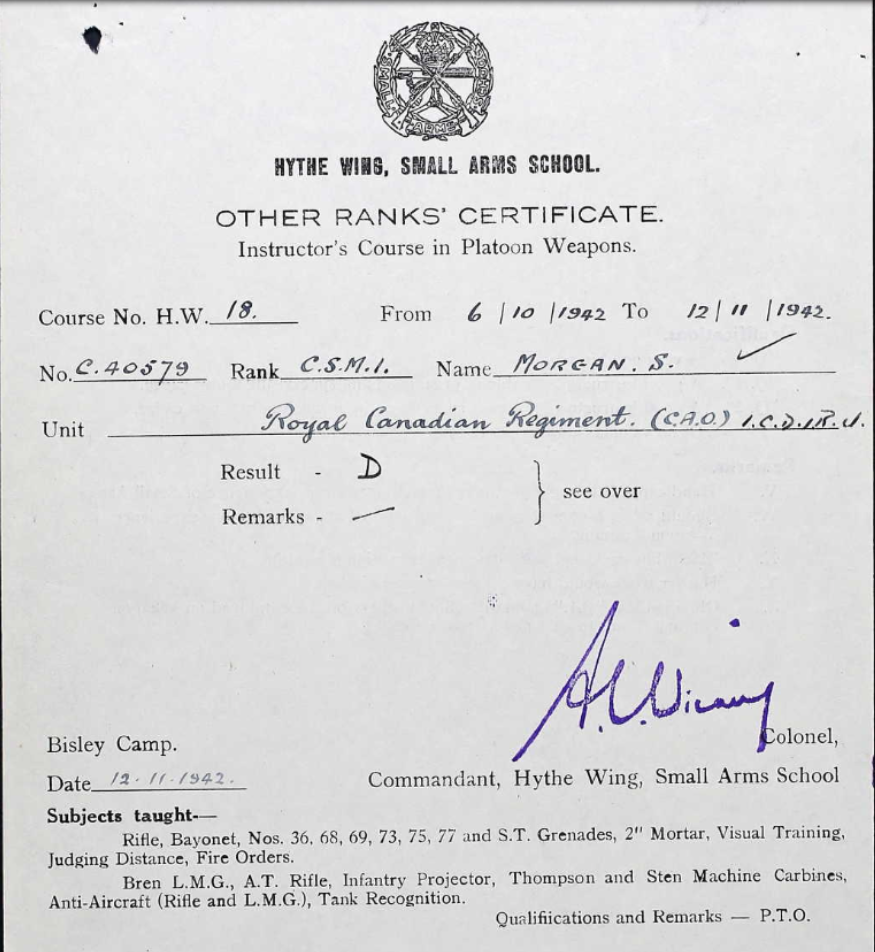 SMALL ARMS SCHOOL
HYTHE WING, SMALL ARMS SCHOOL.
OTHER RANKS' CERTIFICATE.
Instructor's Course in Platoon Weapons.
Course No. H.W. 18. From 6/10/1942 To 12/11/1942.
No. C.40579 Rank C.S.M.I. Name MORGAN. S.
Unit Royal Canadian Regiment. (C.A.O.) 1.C.D.I.R.U.
Result - D
Remarks - — } see over
Bisley Camp.
Colonel,
Date 12.11.1942. Commandant, Hythe Wing, Small Arms School
Subjects taught—
Rifle, Bayonet, Nos. 36, 68, 69, 73, 75, 77 and S.T. Grenades, 2" Mortar, Visual Training,
Judging Distance, Fire Orders.
Bren L.M.G., A.T. Rifle, Infantry Projector, Thompson and Sten Machine Carbines,
Anti-Aircraft (Rifle and L.M.G.), Tank Recognition.
Qualifiications and Remarks — P.T.O.